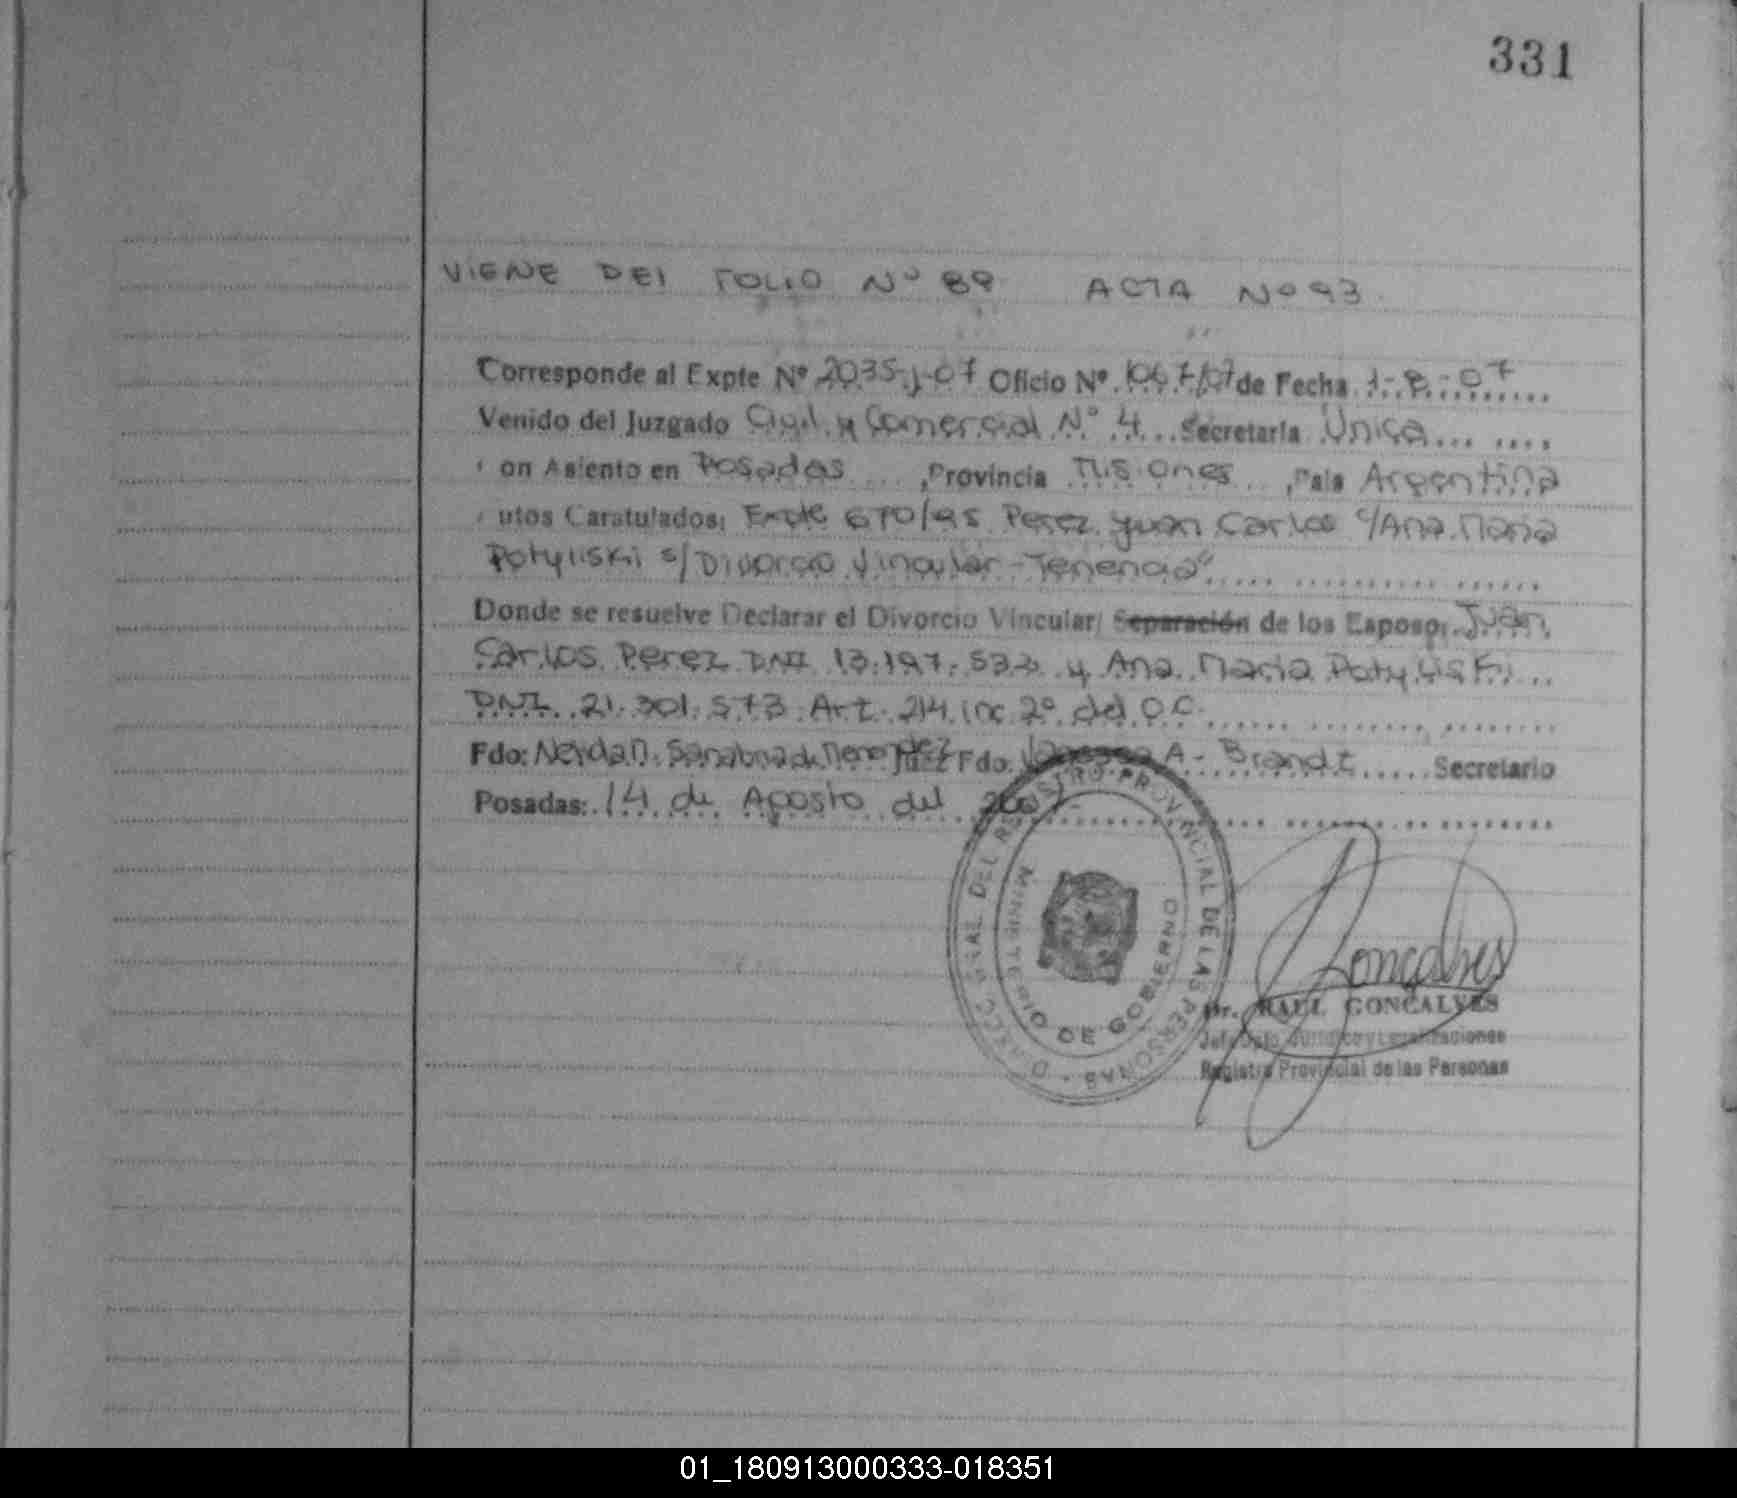 331
VIENE DEL FOLIO Nº 89 ACTA Nº 93
Corresponde al Expte Nº 2035-J-07 Oficio Nº 1067/07 de Fecha 1-8-07
Venido del Juzgado Civil y Comercial Nº 4 Secretaría Única
on Asiento en Posadas, Provincia Misiones, País Argentina
utos Caratulados: Expte 670/95 Perez Juan Carlos c/Ana Maria
Potyliski s/Divorcio Vincular-Tenencia"
Donde se resuelve Declarar el Divorcio Vincular/ Separación de los Esposo: Juan
Carlos Perez DNI 13.197.532 y Ana Maria Potyliski
DNI 21.301.573 Art. 214 inc 2º del C.C.
Fdo: Juez Fdo. A. Brandt Secretario
Posadas: 14 de Agosto del 2007
DEL REGISTRO PROVINCIAL DE LAS PERSONAS
MINISTERIO DE GOBIERNO
Goncalves
Dr. RAUL GONCALVES
Jefe Dpto. Jurídico y Legalizaciones
Registro Provincial de las Personas
01_180913000333-018351